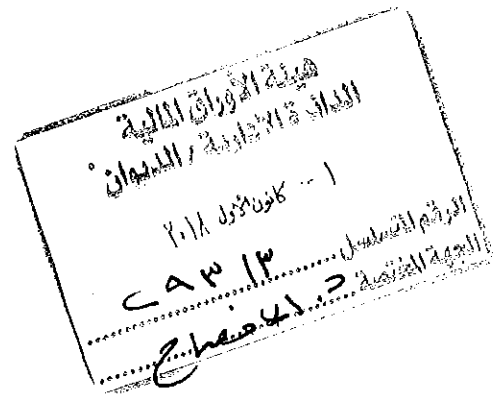 هيئة الأوراق المالية
الدائرة الادارية / الديوان
٠١ كانون الأول ٢٠١٨
الرقم المتسلسل ٢٩٣١٣
الجهة المختصة د. الافصاح